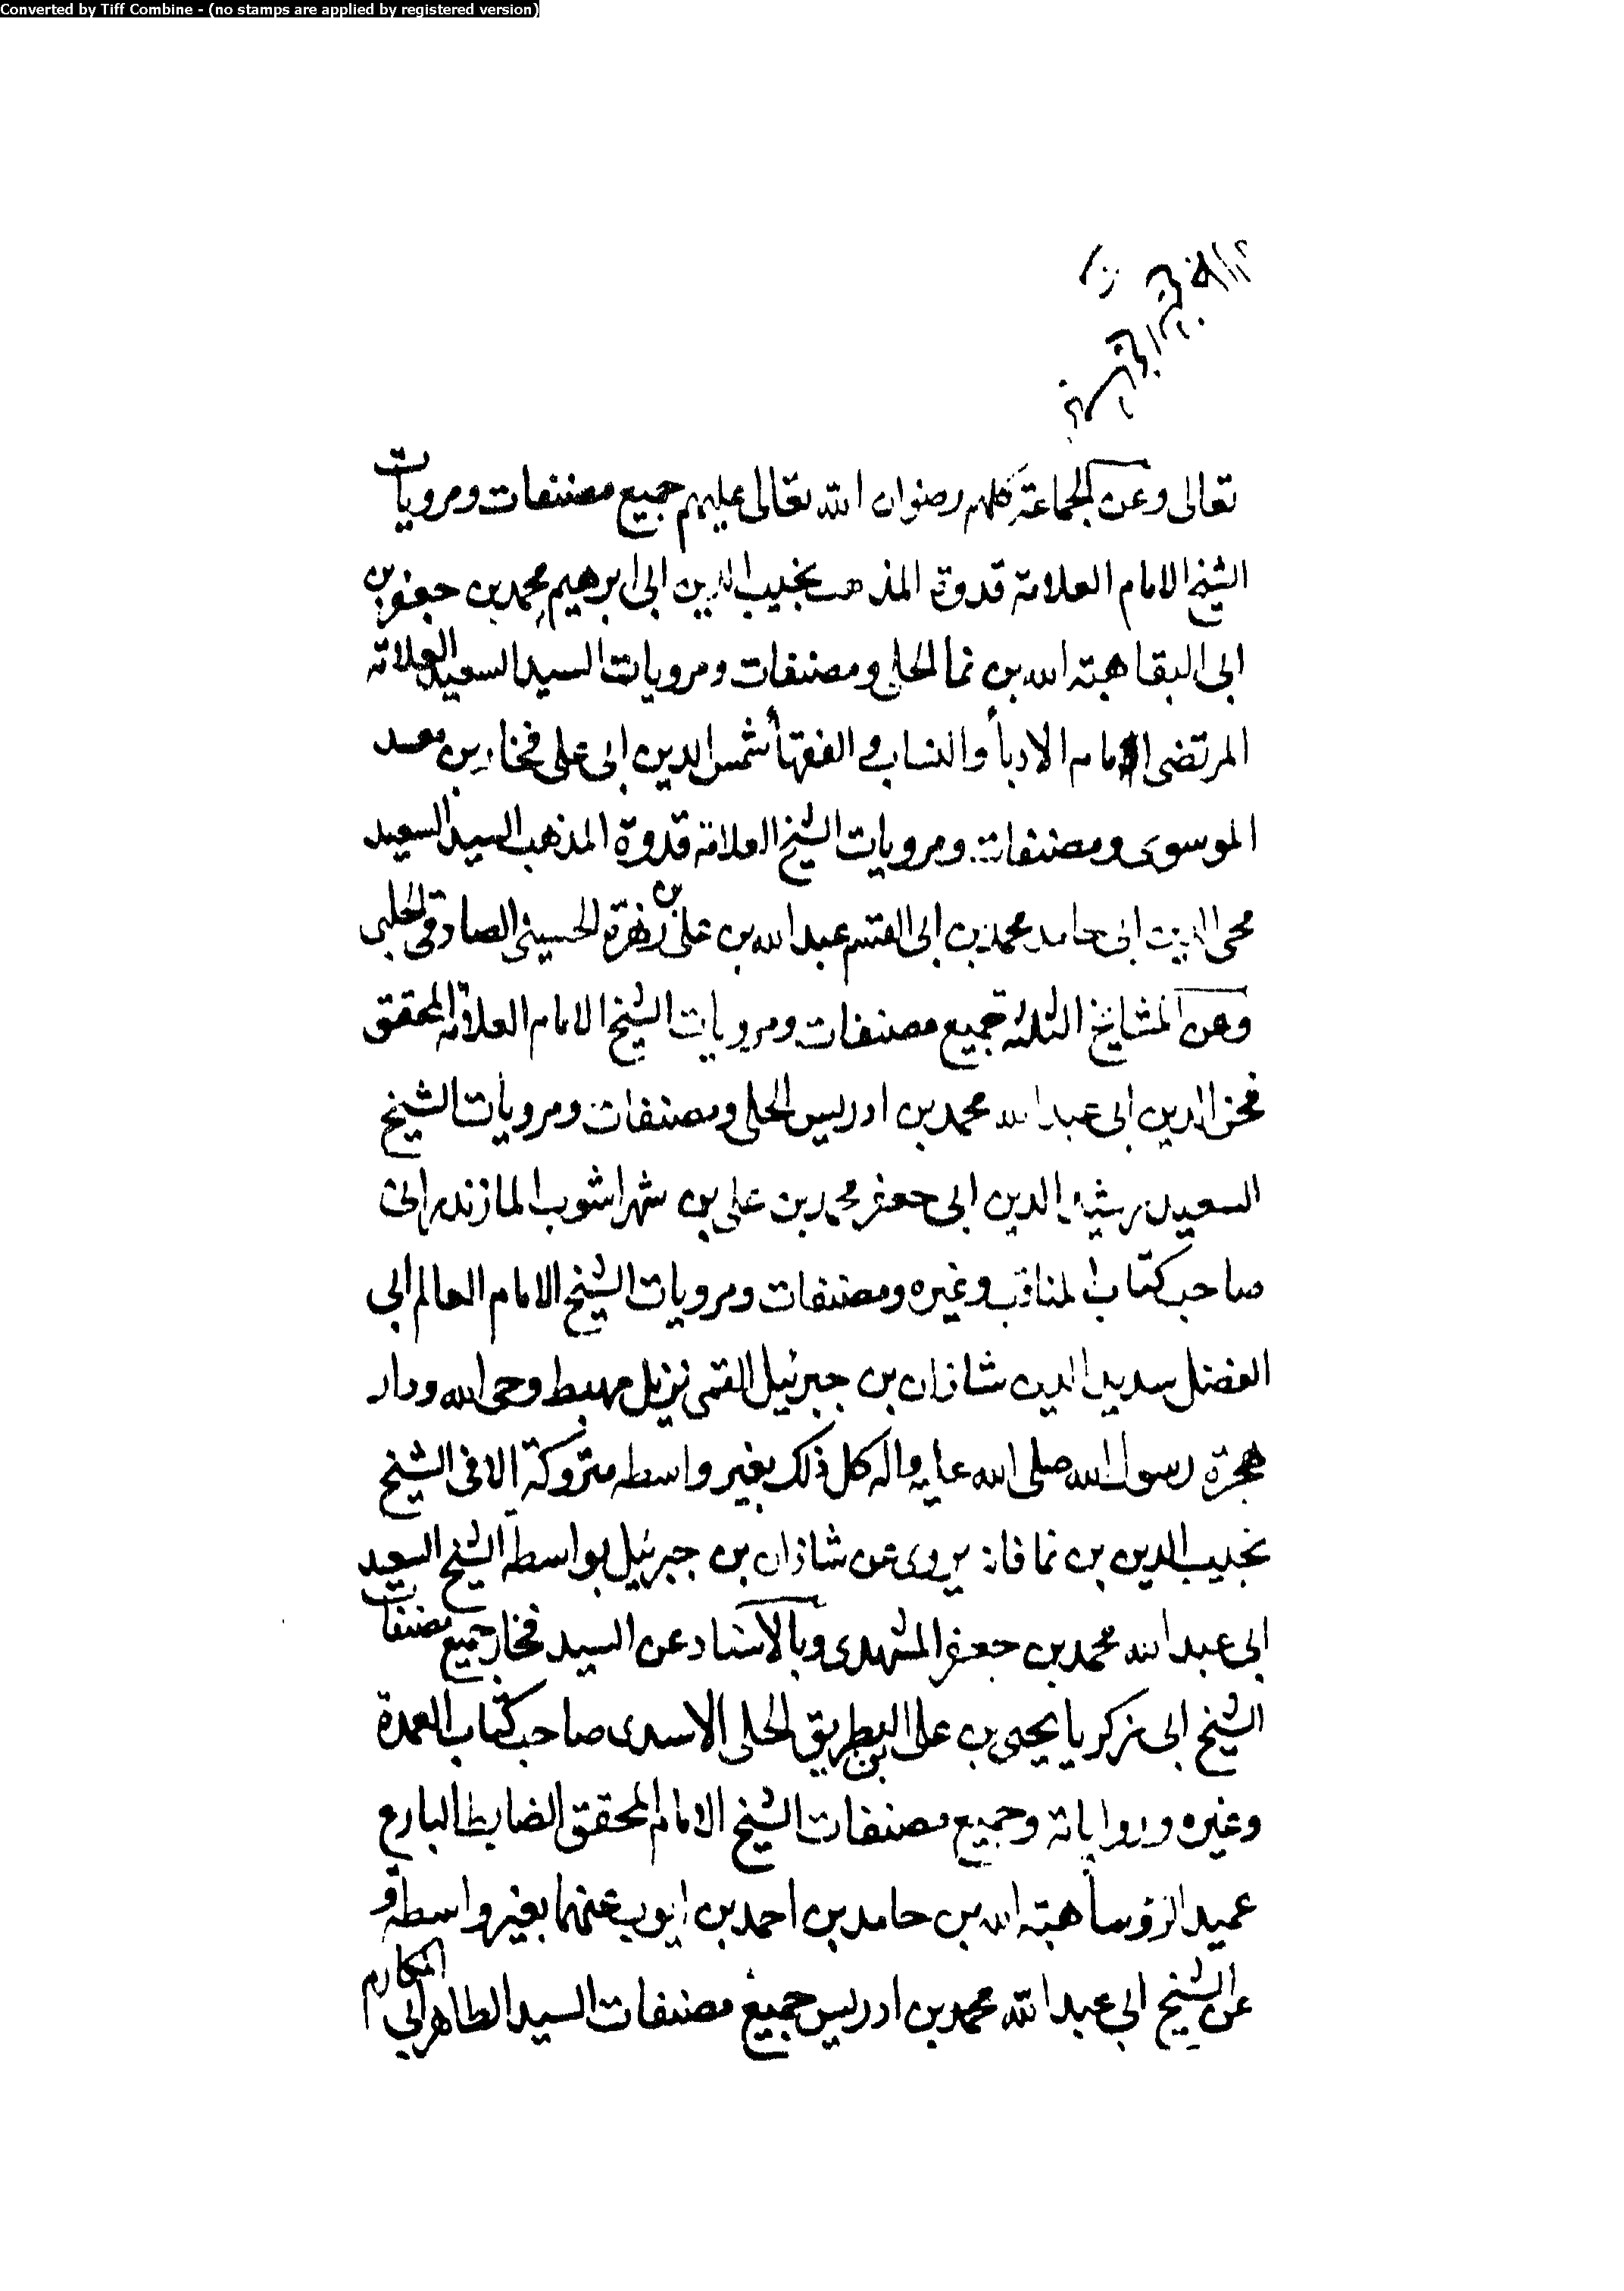 Converted by Tiff Combine - (no stamps are applied by registered version)
تعالى وعن الجماعة كلهم رضوان الله تعالى عليهم جميع مصنفات ومرويات
الشيخ الامام العلامة قدوة المذهب نجيب الدين ابى ابرهيم محمد بن جعفر بن
ابى البقا هبته الله بن نما الحلى ومصنفات ومرويات السيد السعيد العلامه
المرتضى امام الادبأ والنساب والفقهأ شمس الدين ابى على فخار بن معد
الموسوى ومصنفات ومرويات الشيخ العلامة قدوة المذهب السيد السعيد
محى الدين ابى حامد محمد بن ابى القسم عبد الله بن على بن زهرة الحسينى الصادقى الحلبى
وعن المشايخ الثلثة جميع مصنفات ومرويات الشيخ الامام العلامة المحقق
فخر الدين ابى عبد الله محمد بن ادريس الحلى ومصنفات ومرويات الشيخ
السعيد رشيد الدين ابى جعفر محمد بن على بن شهراشوب المازندرانى
صاحب كتاب المناقب وغيره ومصنفات ومرويات الشيخ الامام العالم ابى
الفضل سديد الدين شاذان بن جبرئيل القمى نزيل مهبط وحى الله ودار
هجرة رسول الله صلى الله عليه واله كل ذلك بغير واسطه متروكة الا فى الشيخ
نجيب الدين بن نما فانه يروى عن شاذان بن جبرئيل بواسطة الشيخ السعيد
ابى عبد الله محمد بن جعفر المشهدى وبالاسناد عن السيد فخار جميع مصنفات
الشيخ ابى زكريا يحيى بن على بن البطريق الحلى الاسدى صاحب كتاب العمدة
وغيره ورواياته وجميع مصنفات الشيخ الامام المحقق الضابط البارع
عميد الرؤسأ هبته الله بن حامد بن احمد بن ايوب عنهما بغير واسطة و
عن الشيخ ابى عبد الله محمد بن ادريس جميع مصنفات السيد الطاهر ابى المكارم